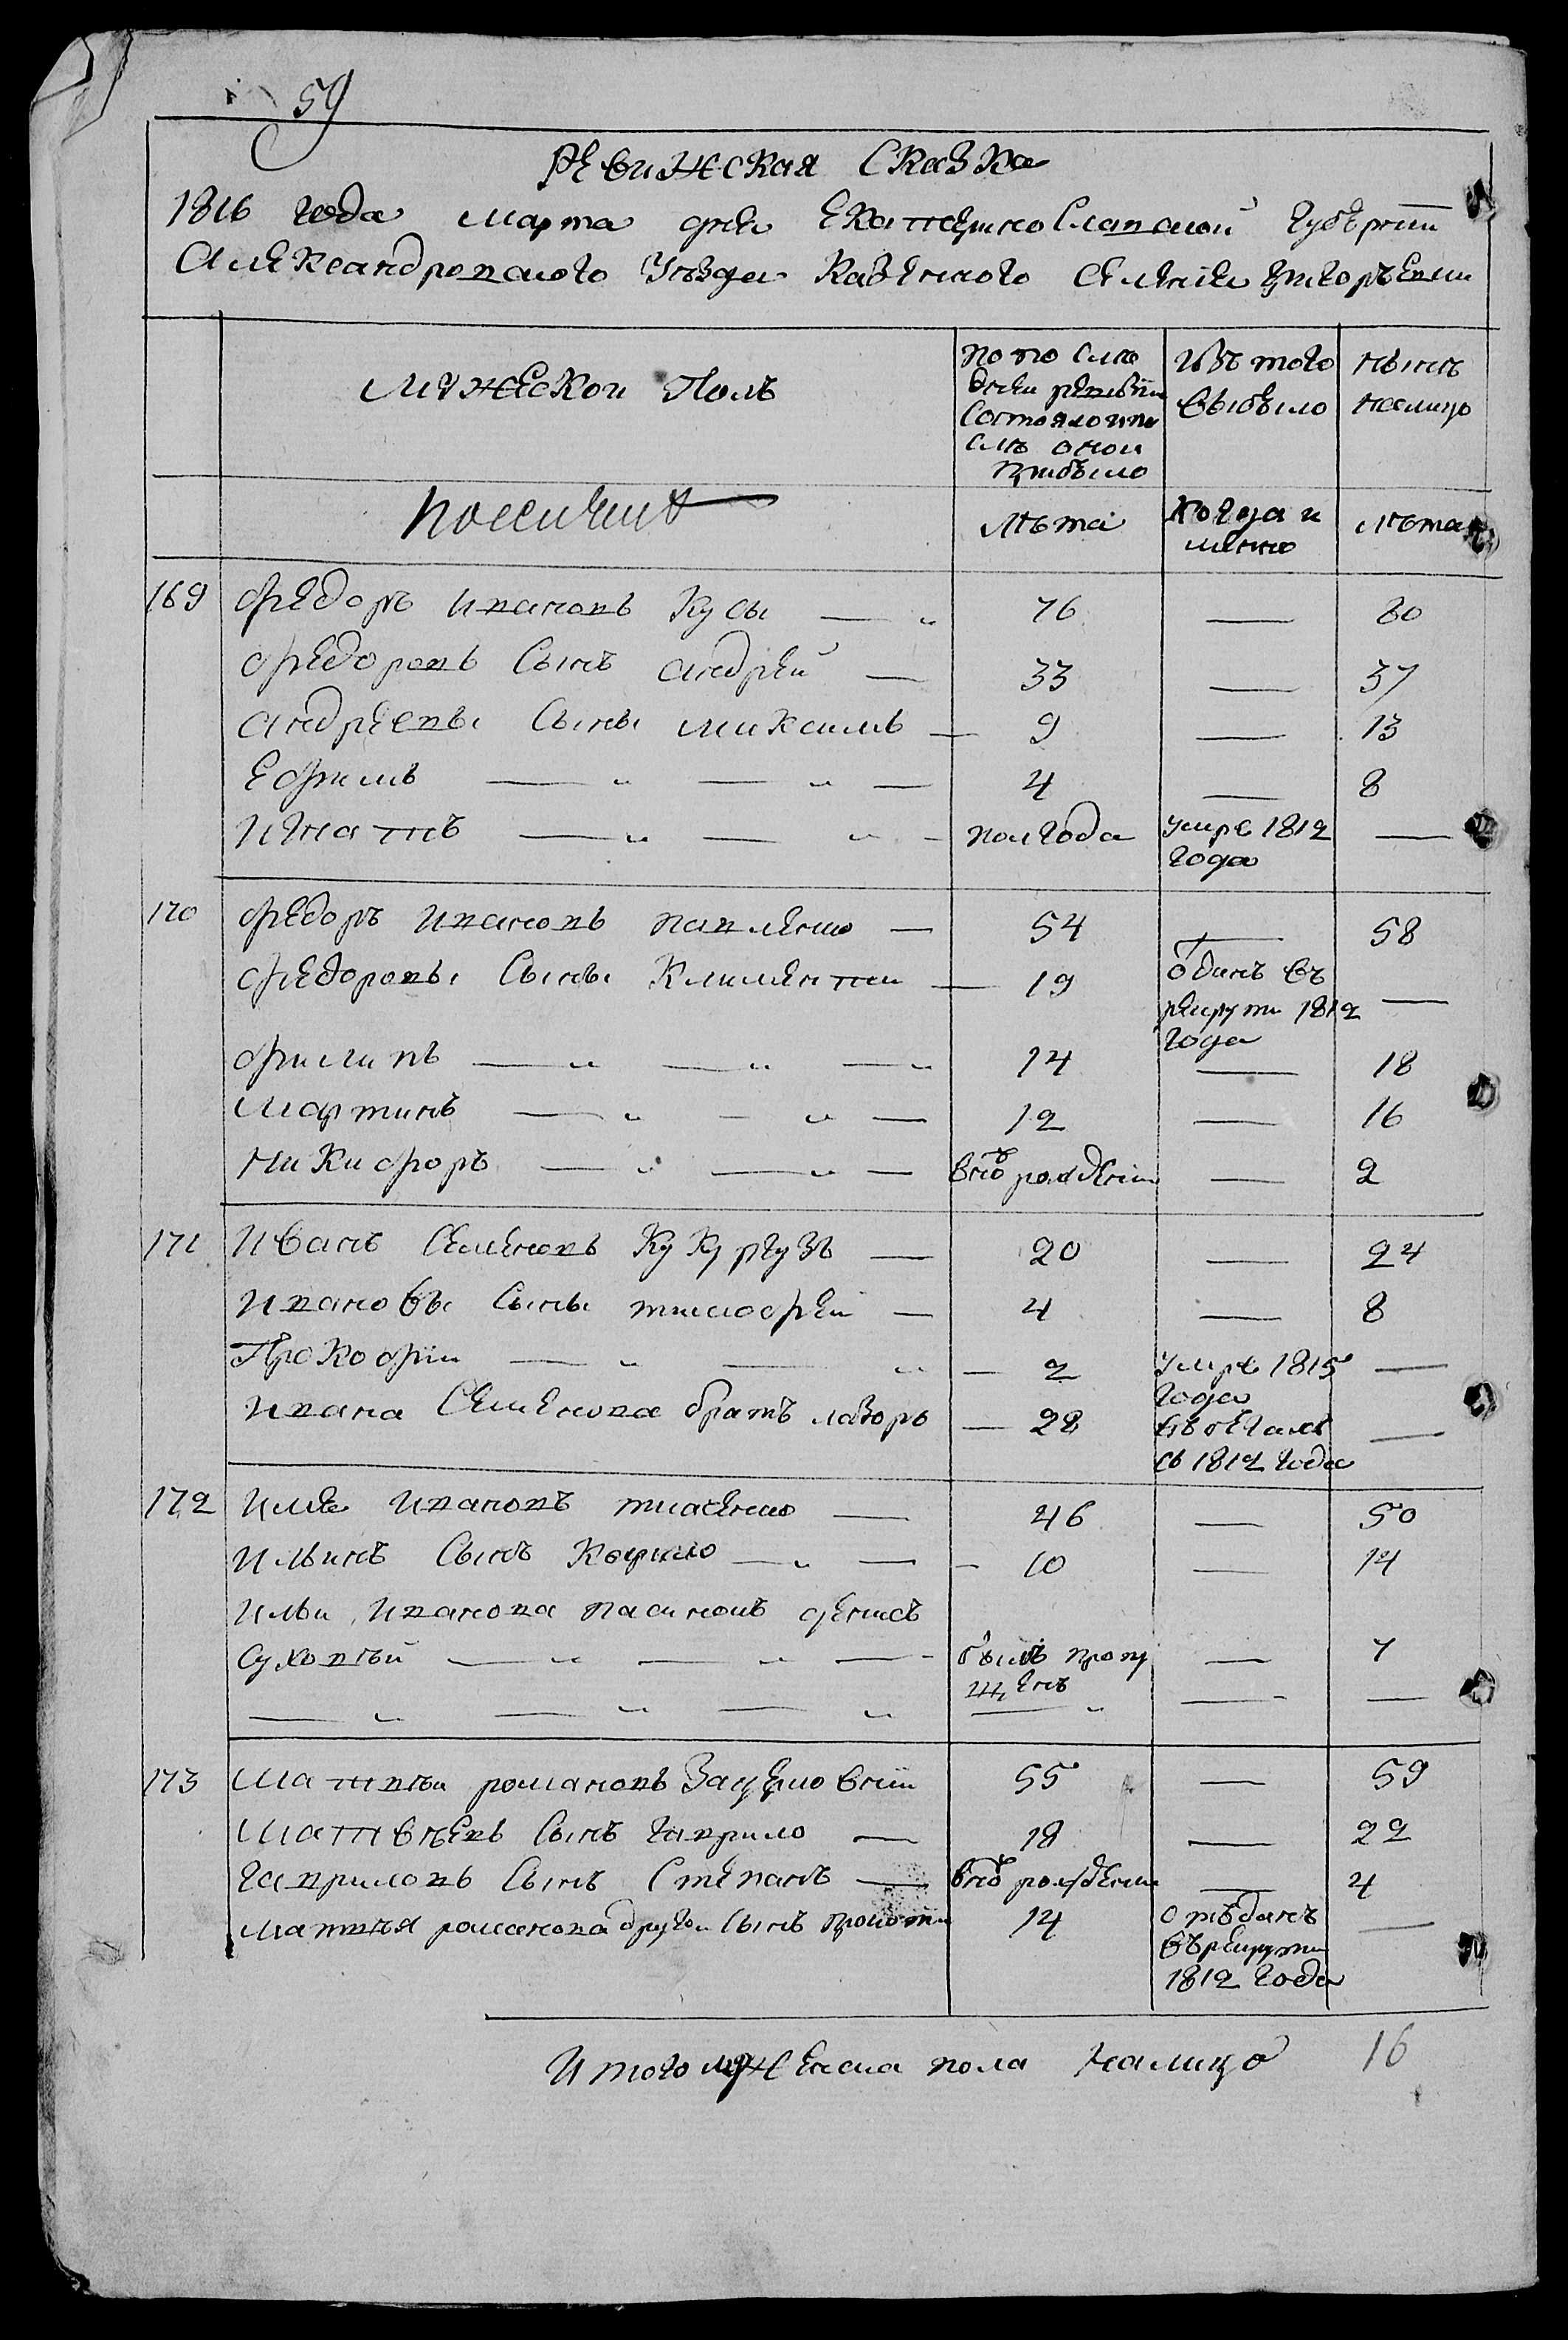 59
Ревижская Сказка
1816 года марта дня Екатеринославской губернии
Александровского Уезда Казенного Селения Григорьевки
мужеской Полъ
по по след
ней ревизии
состояло и по
слѣ оной
прибыло
Изъ того
выбыло
нынѣ
налицо
лѣта
когда и
менно
лѣта
169 Федоръ Ивановъ Кусы — 76 — 80
Федоровъ Сынъ Андрей — 33 — 37
Андреевы Сыны Максимъ — 9 — 13
Ефимъ — „ — „ — 4 — 8
Игнатъ — „ — „ — полгода умре 1812 года —
170 Федоръ Ивановъ Павленко — 54 — 58
Федоровы Сыны Климентий — 19 отданъ въ рекруты 1812 года —
Филипъ — „ — „ — „ 14 — 18
Мартинъ — „ — „ — 12 — 16
Никифоръ — „ — „ — вновь рожденный — 2
171 Иванъ Семеновъ Кукурузъ — 20 — 24
Ивановы Сыны Тимофей — 4 — 8
Прокофий — „ — „ — 2 умре 1815 года —
Ивана Семенова братъ лазоръ — 28 въ бегахъ съ 1812 года —
172 Илья Ивановъ — 46 — 50
Ильинъ Сынъ — „ — 10 — 14
Ильи Иванова пасинокъ Денисъ
Суховѣй — „ — „ — былъ пропущенъ — 7
— „ — „ — „ — „ — —
173 Матвѣй романовъ 55 — 59
Матвѣевъ Сынъ Гаврило — 18 — 22
Гавриловъ Сынъ Степанъ — вновь рожденный — 4
Матвѣя романова другой Сынъ 14 отъданъ въ рекруты 1812 года —
Итого мужеска пола налицо 16